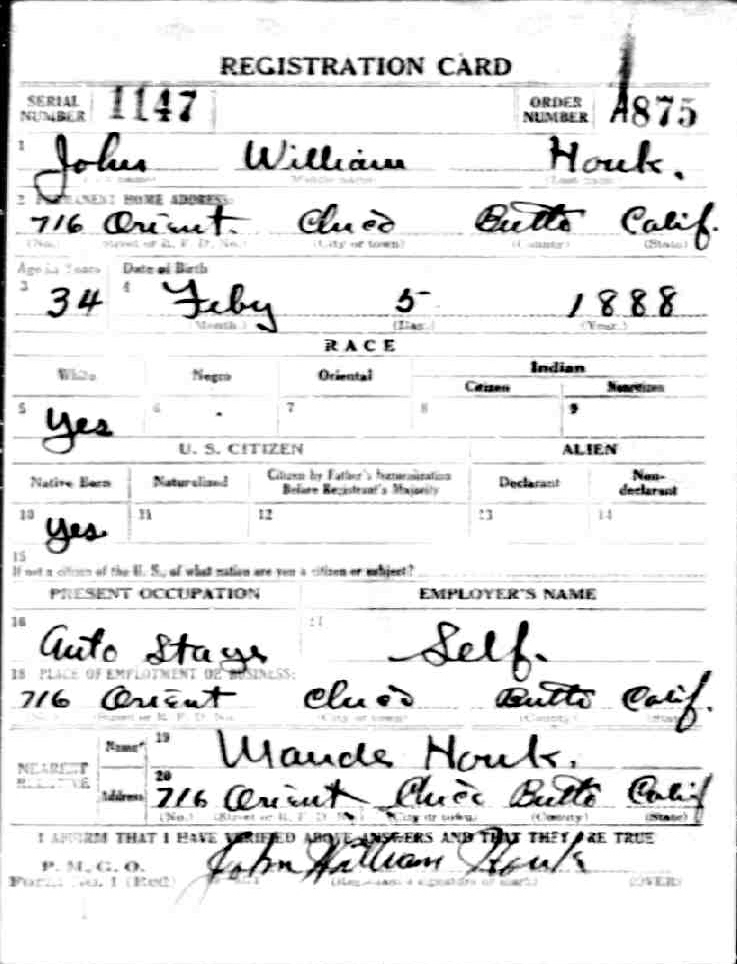 REGISTRATION CARD
SERIAL NUMBER 1147 ORDER NUMBER A875
1 John William Houk.
2 PERMANENT HOME ADDRESS:
716 Orient. Chico Butte Calif.
(No.) (Street or R. F. D. No.) (City or town) (County) (State)
Age in Years Date of Birth
3 34 4 Feby 5 1888
(Month.) (Day.) (Year.)
RACE
White Negro Oriental Indian
Citizen Noncitizen
5 Yes 6 7 8 9
U. S. CITIZEN ALIEN
Native Born Naturalized Citizen by Father's Naturalization Before Registrant's Majority Declarant Non-declarant
10 Yes 11 12 13 14
15
If not a citizen of the U. S., of what nation are you a citizen or subject?
PRESENT OCCUPATION EMPLOYER'S NAME
16 Auto Stage 17 Self.
18 PLACE OF EMPLOYMENT OR BUSINESS:
716 Orient Chico Butte Calif.
(No.) (Street or R. F. D. No.) (City or town) (County) (State)
NEAREST RELATIVE
Name 19 Maude Houk.
Address 20 716 Orient Chico Butte Calif
(No.) (Street or R. F. D. No.) (City or town) (County) (State)
I AFFIRM THAT I HAVE VERIFIED ABOVE ANSWERS AND THAT THEY ARE TRUE
P. M. G. O.
Form No. 1 (Red) John William Houk
(Registrant's signature or mark) (OVER)